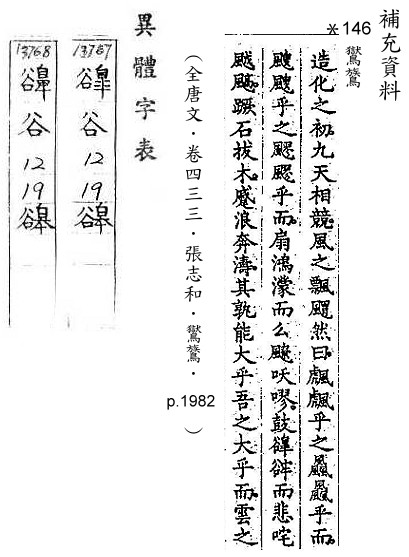 補充資料
*146
鸑鷟
造化之初九天相競風之飄然曰乎之乎而
乎之颸颸乎而扇鴻濛而么吷嘐鼓而悲咤
蹶石拔木蹙浪奔濤其孰能大乎吾之大乎而雲之
（全唐文．卷四三三．張志和．鸑鷟．p.1982）
異體字表
13757 谷 12 19
13768 谷 12 19